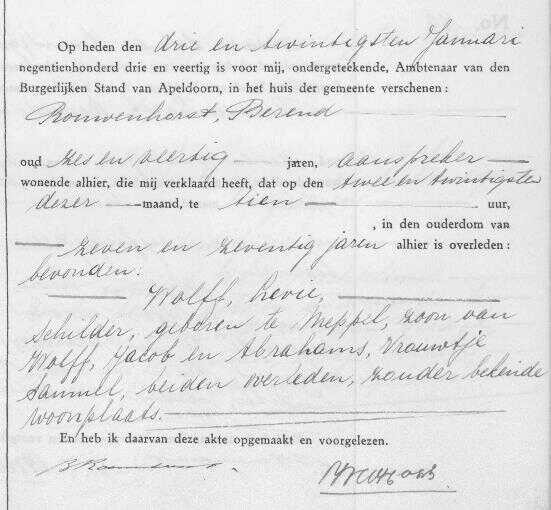 Op heden den drie en twintigsten Januari
negentienhonderd drie en veertig is voor mij, ondergeteekende, Ambtenaar van den
Burgerlijken Stand van Apeldoorn, in het huis der gemeente verschenen:
Rouwenhorst, Berend
oud zes en veertig jaren, aanspreker
wonende alhier, die mij verklaard heeft, dat op den twee en twintigsten
dezer maand, te tien uur,
, in den ouderdom van
zeven en zeventig jaren alhier is overleden:
bevonden:
Wolff, Levie,
schilder, geboren te Meppel, zoon van
Wolff, Jacob en Abrahams, Vrouwtje
Samuel, beiden overleden, zonder bekende
woonplaats.
En heb ik daarvan deze akte opgemaakt en voorgelezen.